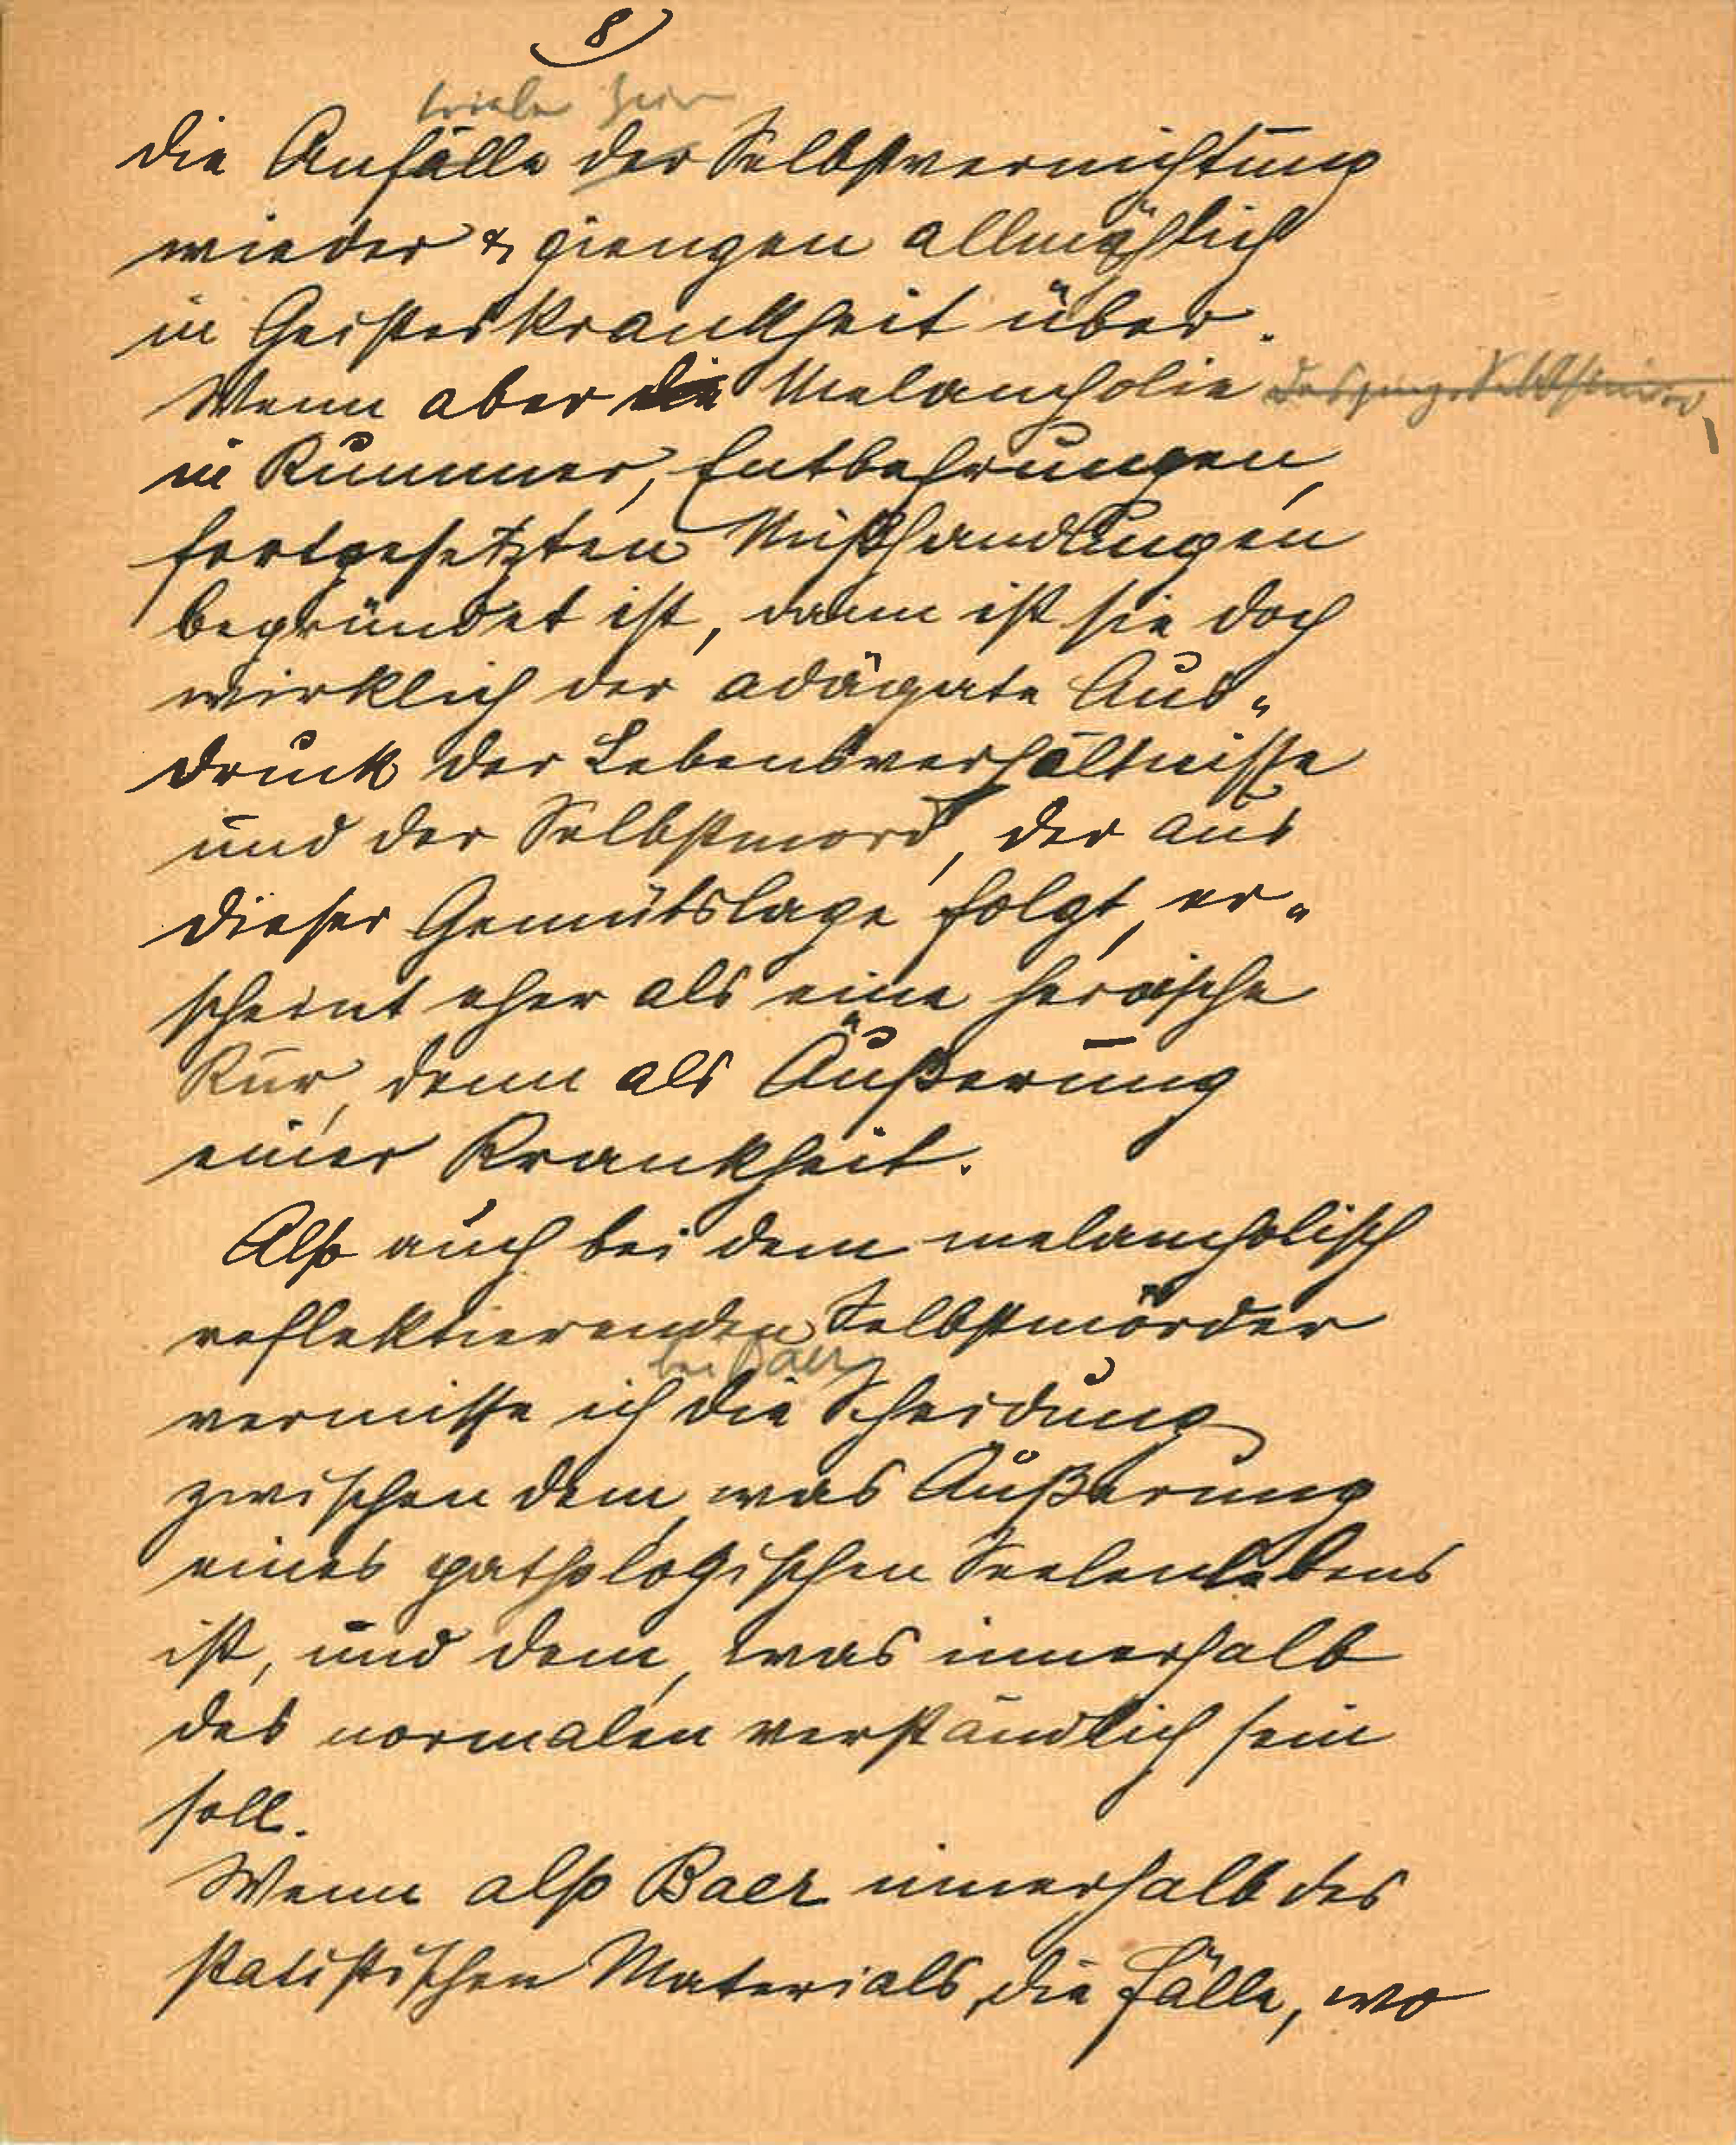 8
triebe zur
die Anfälle der Selbstvernichtung
wieder & giengen allmählich
in Geisteskrankheit über.
Wenn aber die Melancholie
in Kummer, Entbehrungen,
fortgesetzten Mißhandlungen
begründet ist, dann ist sie doch
wirklich der adäquate Aus-
druck der Lebensverhältnisse
und der Selbstmord, der aus
dieser Gemütslage folgt, er-
scheint eher als eine heroische
Kur, denn als Äußerung
einer Krankheit.
Also auch bei dem melancholisch
reflektierenden Selbstmörder
bei Baer
vermisse ich die Scheidung
zwischen dem, was Äußerung
eines pathologischen Seelenlebens
ist, und dem, was innerhalb
des normalen verständlich sein
soll.
Wenn also Baer innerhalb des
statistischen Materials, die Fälle, wo